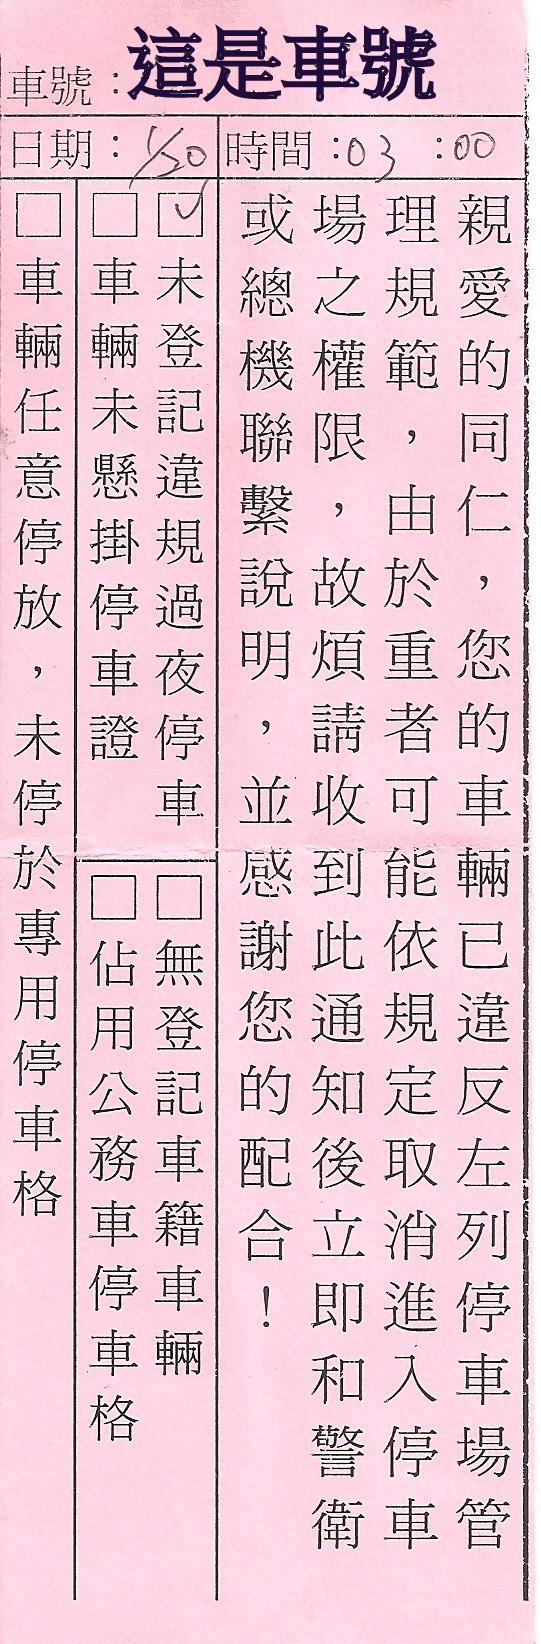 車號：這是車號
日期：1/20
時間：03：00
親愛的同仁，您的車輛已違反左列停車場管
理規範，由於重者可能依規定取消進入停車
場之權限，故煩請收到此通知後立即和警衛
或總機聯繫說明，並感謝您的配合！
☑未登記違規過夜停車
□無登記車籍車輛
□車輛未懸掛停車證
□佔用公務車停車格
□車輛任意停放，未停於專用停車格